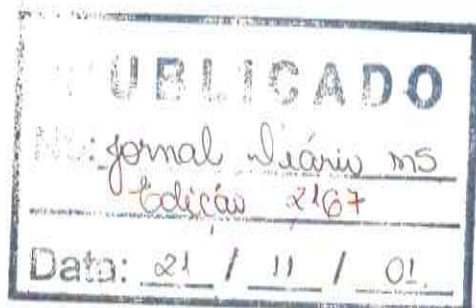 PUBLICADO
No: Jornal Diário MS
Edição 2167
Data: 21 / 11 / 01.